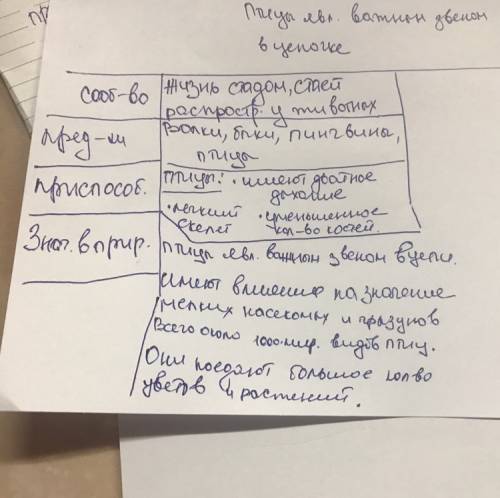 Птицы явл. важным звеном
в цепочке
сооб-во
Жизнь стадом, стаей
распростр. у животных
пред-ли
Волки, быки, пингвины,
птицы
приспособ.
Птицы: • имеют двойное
дыхание
• легкий • уменьшенное
скелет кол-во костей.
Знач. в прир.
Птицы явл. важным звеном в цепи.
Имеют влияние на значение
мелких насекомых и грызунов
Всего около 1000 видов птиц.
Они поедают большое кол-во
цветов и растений.